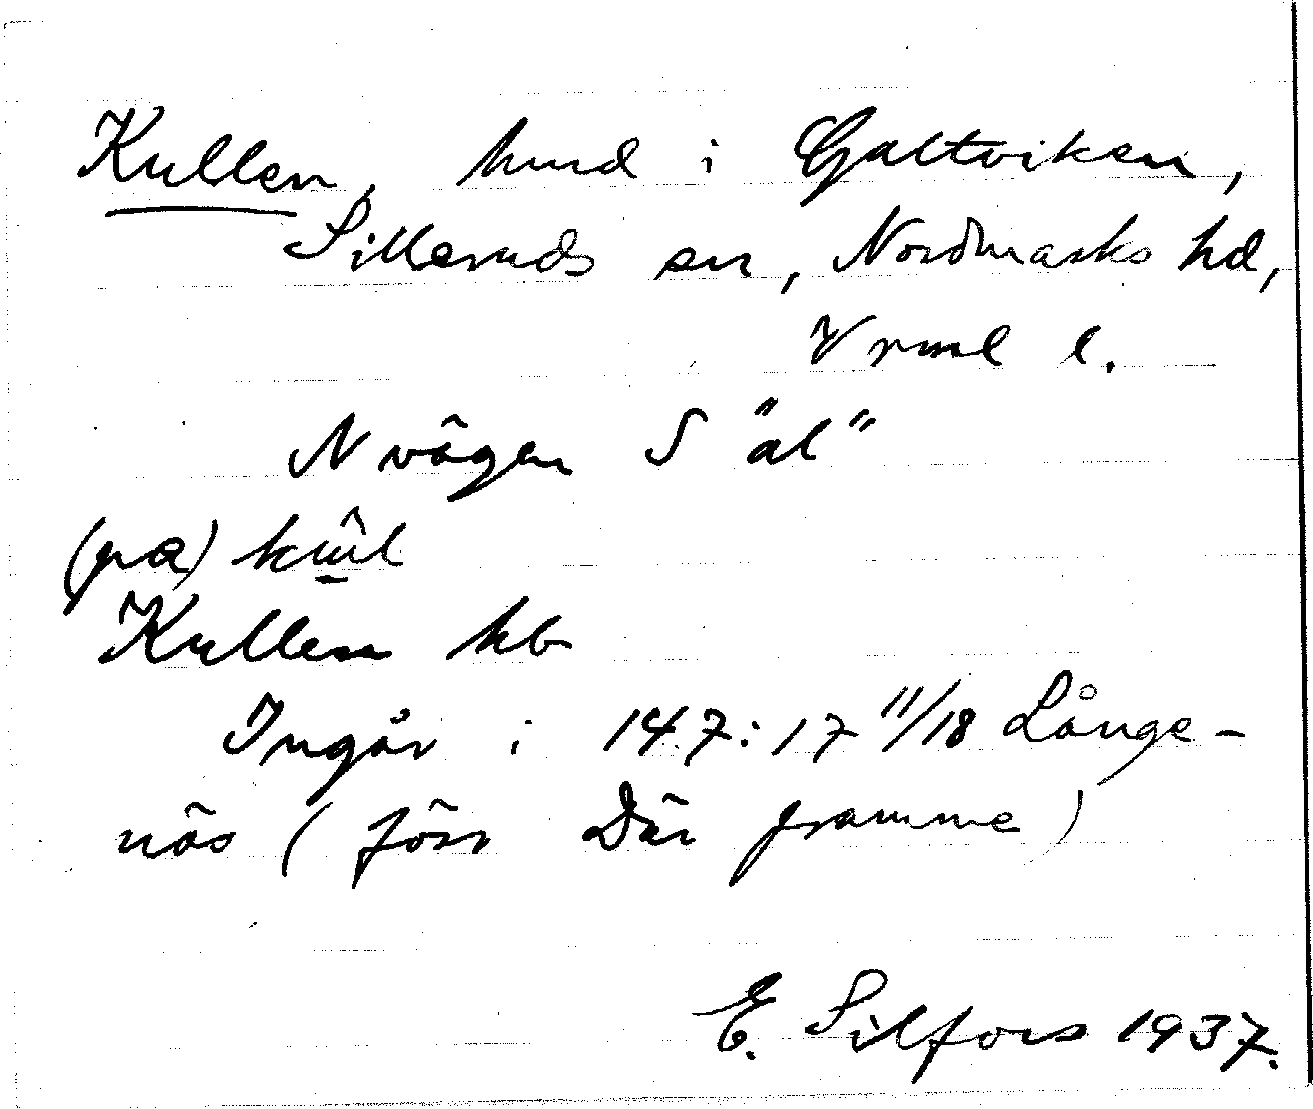 Kullen, hmd i Galtviken,
Silleruds sn, Nordmarks hd,
Vrml l.
N vägen S "äl"
(pα) kɯ̂l
Kullen kb
Ingår i 147:17 11/18 Långe-
näs (förr Där framme)
E. Silfors 1937.